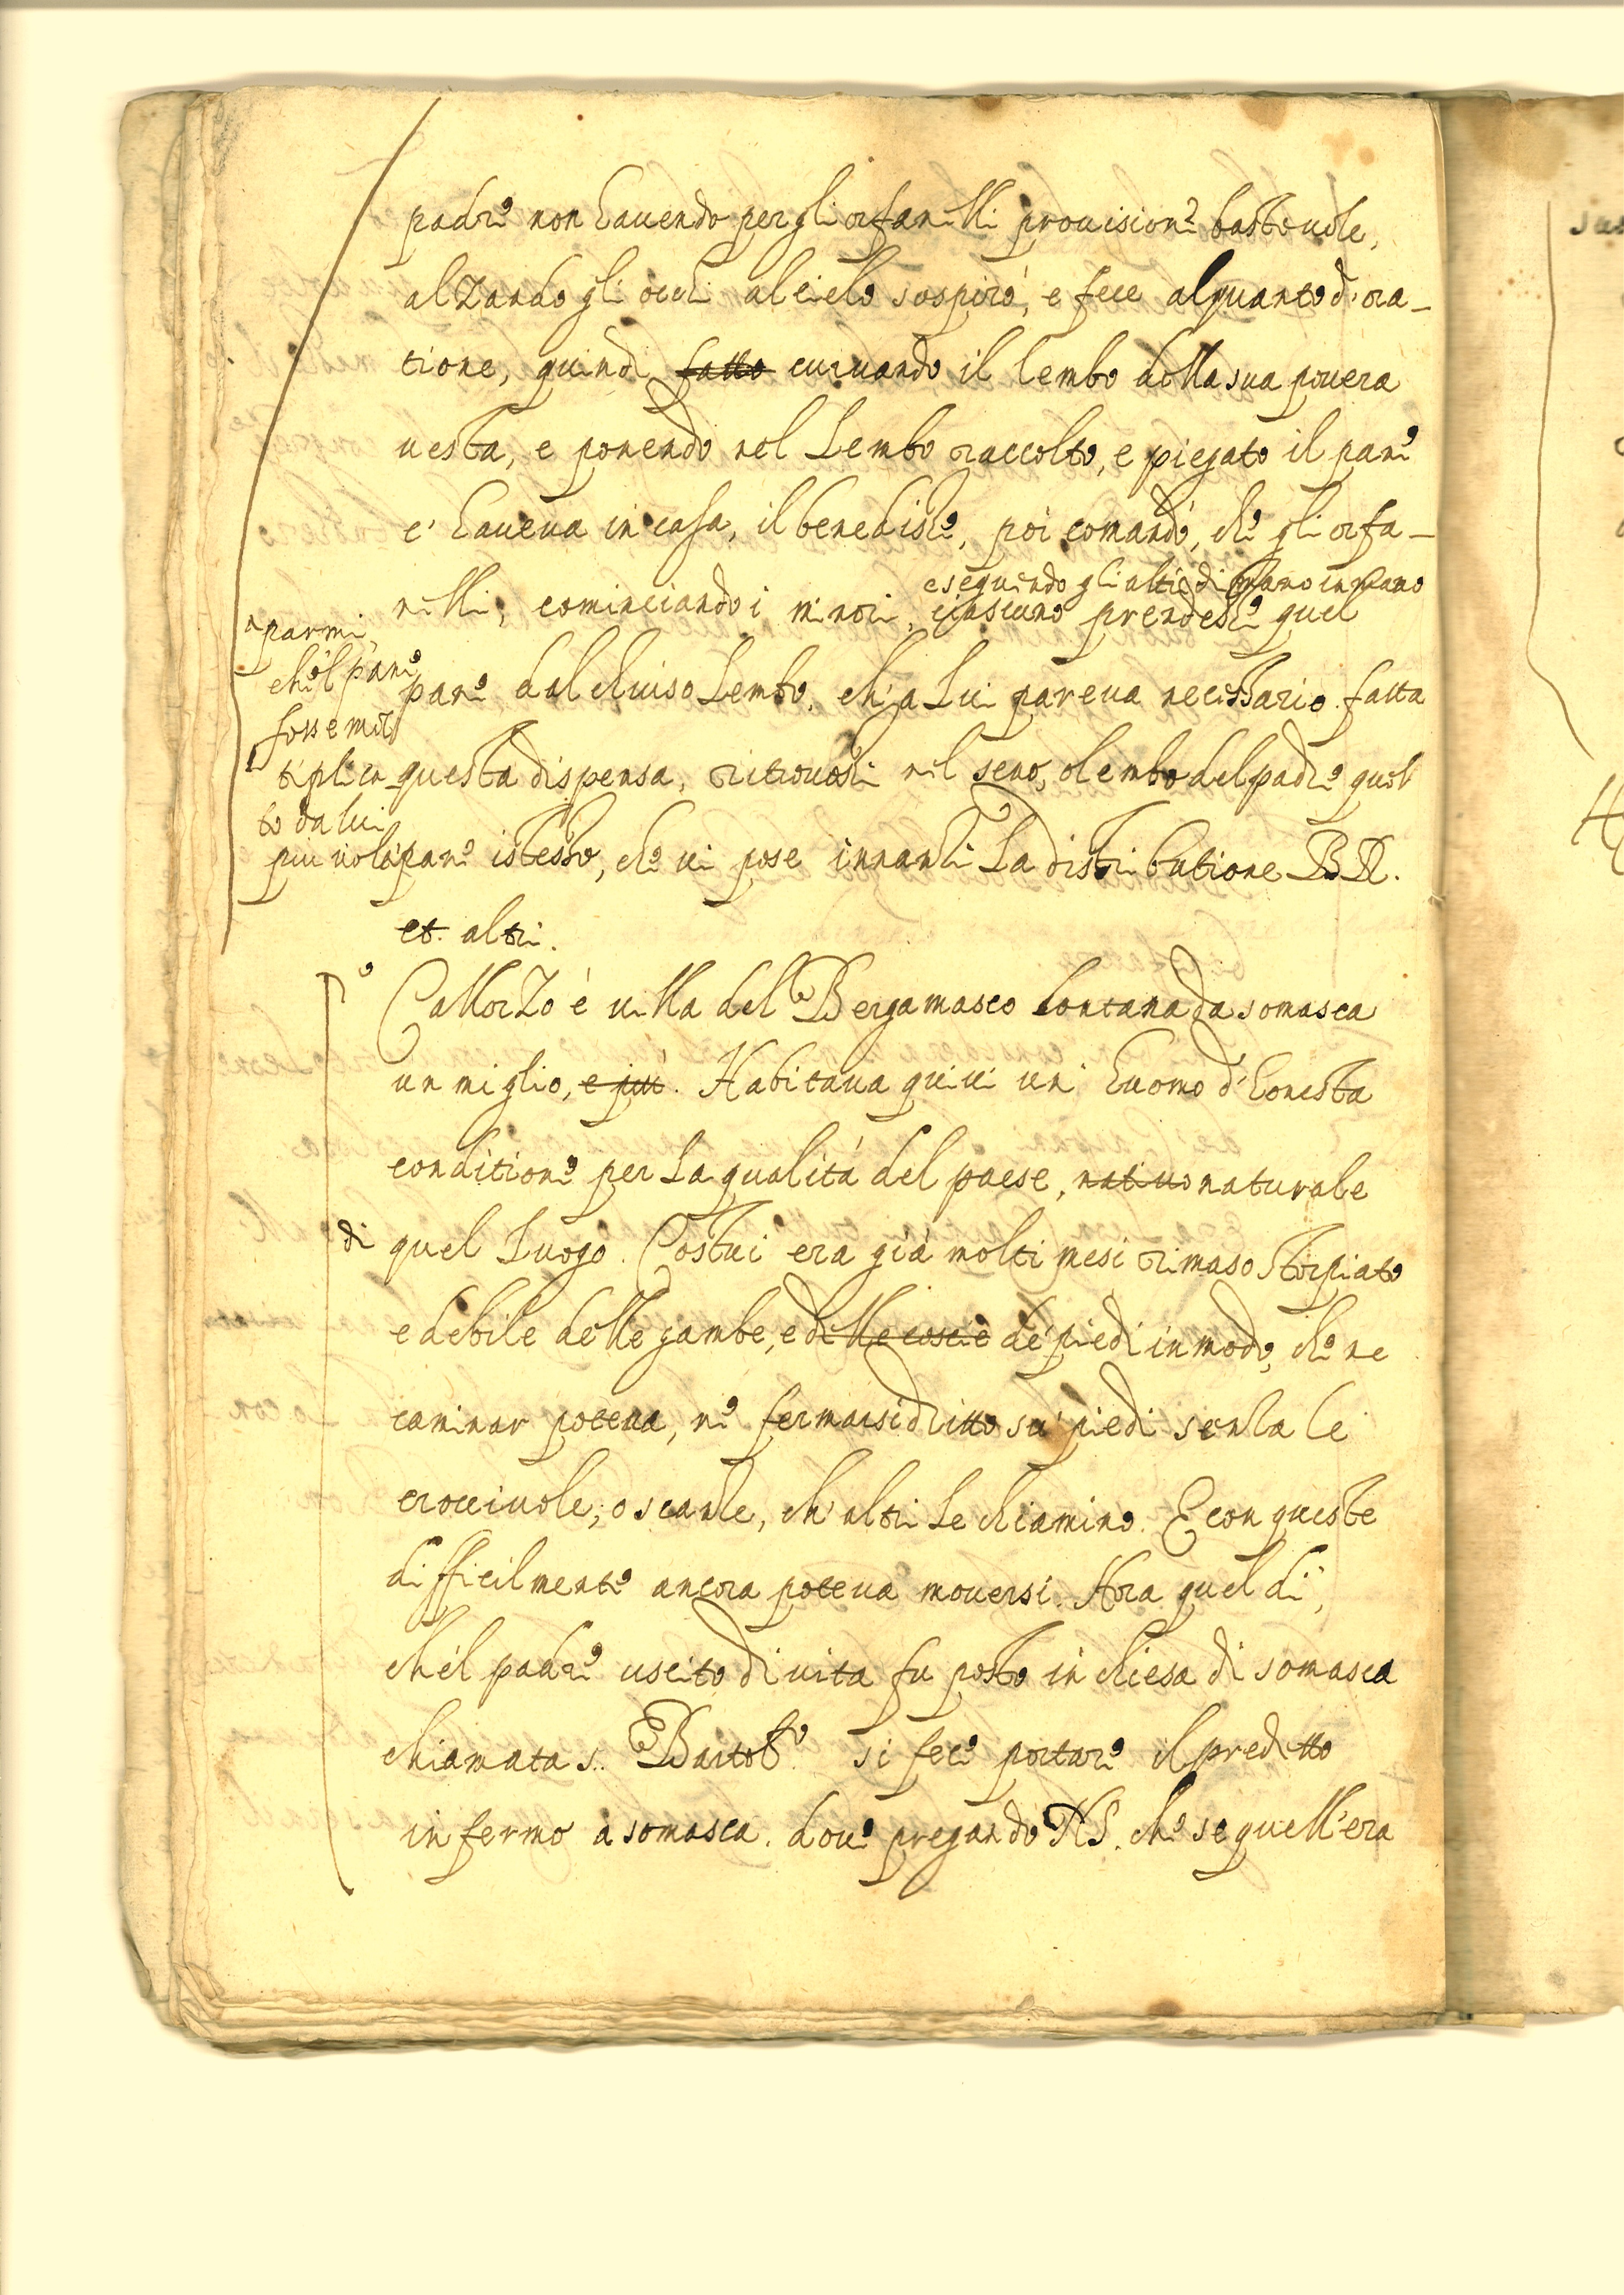 padre non havendo per gli orfanelli provisione bastevole,
alzando gli occhi al cielo sospirò, e fece alquanto d'ora-
tione, quindi fatto curvando il lembo della sua povera
vesta, e ponendo nel Lembo raccolto, e piegato il pane
c'haveva in casa, il benedisse, poi comandò, che gli orfa-
e seguendo gli altri di mano in mano
nelli, cominciando i minori, ciascuno prendesse quel
parmi
che'l pane
fosse mol
tiplica
to da lui
più volte
pane dal chiuso Lembo, ch'a Lui pareva necessario. fatta
questa dispensa, ritrovossi nel seno, o lembo del padre quel
pane istesso, che vi pose innanzi La distributione
et. altri.
Callorzo è villa del Bergamasco lontana da somasca
un miglio, e più. Habitava quivi un huomo d'honesta
conditione per La qualità del paese, nativo naturale
di quel Luogo. Costui era già molti mesi rimaso storpiato
e debile delle gambe, e delle coscie de' piedi in modo, che ne
caminar poteva, ne fermarsi dritto su' piedi senza le
crocciuole, o scanze, ch'altri Le chiamino. E con queste
difficilmente ancora poteva moversi. Hora quel dì,
che'l padre uscito di vita fu posto in chiesa di somasca
chiamata s. Bartolo. si fece portare il predetto
infermo a somasca. dove pregando N.S. che se quell'era